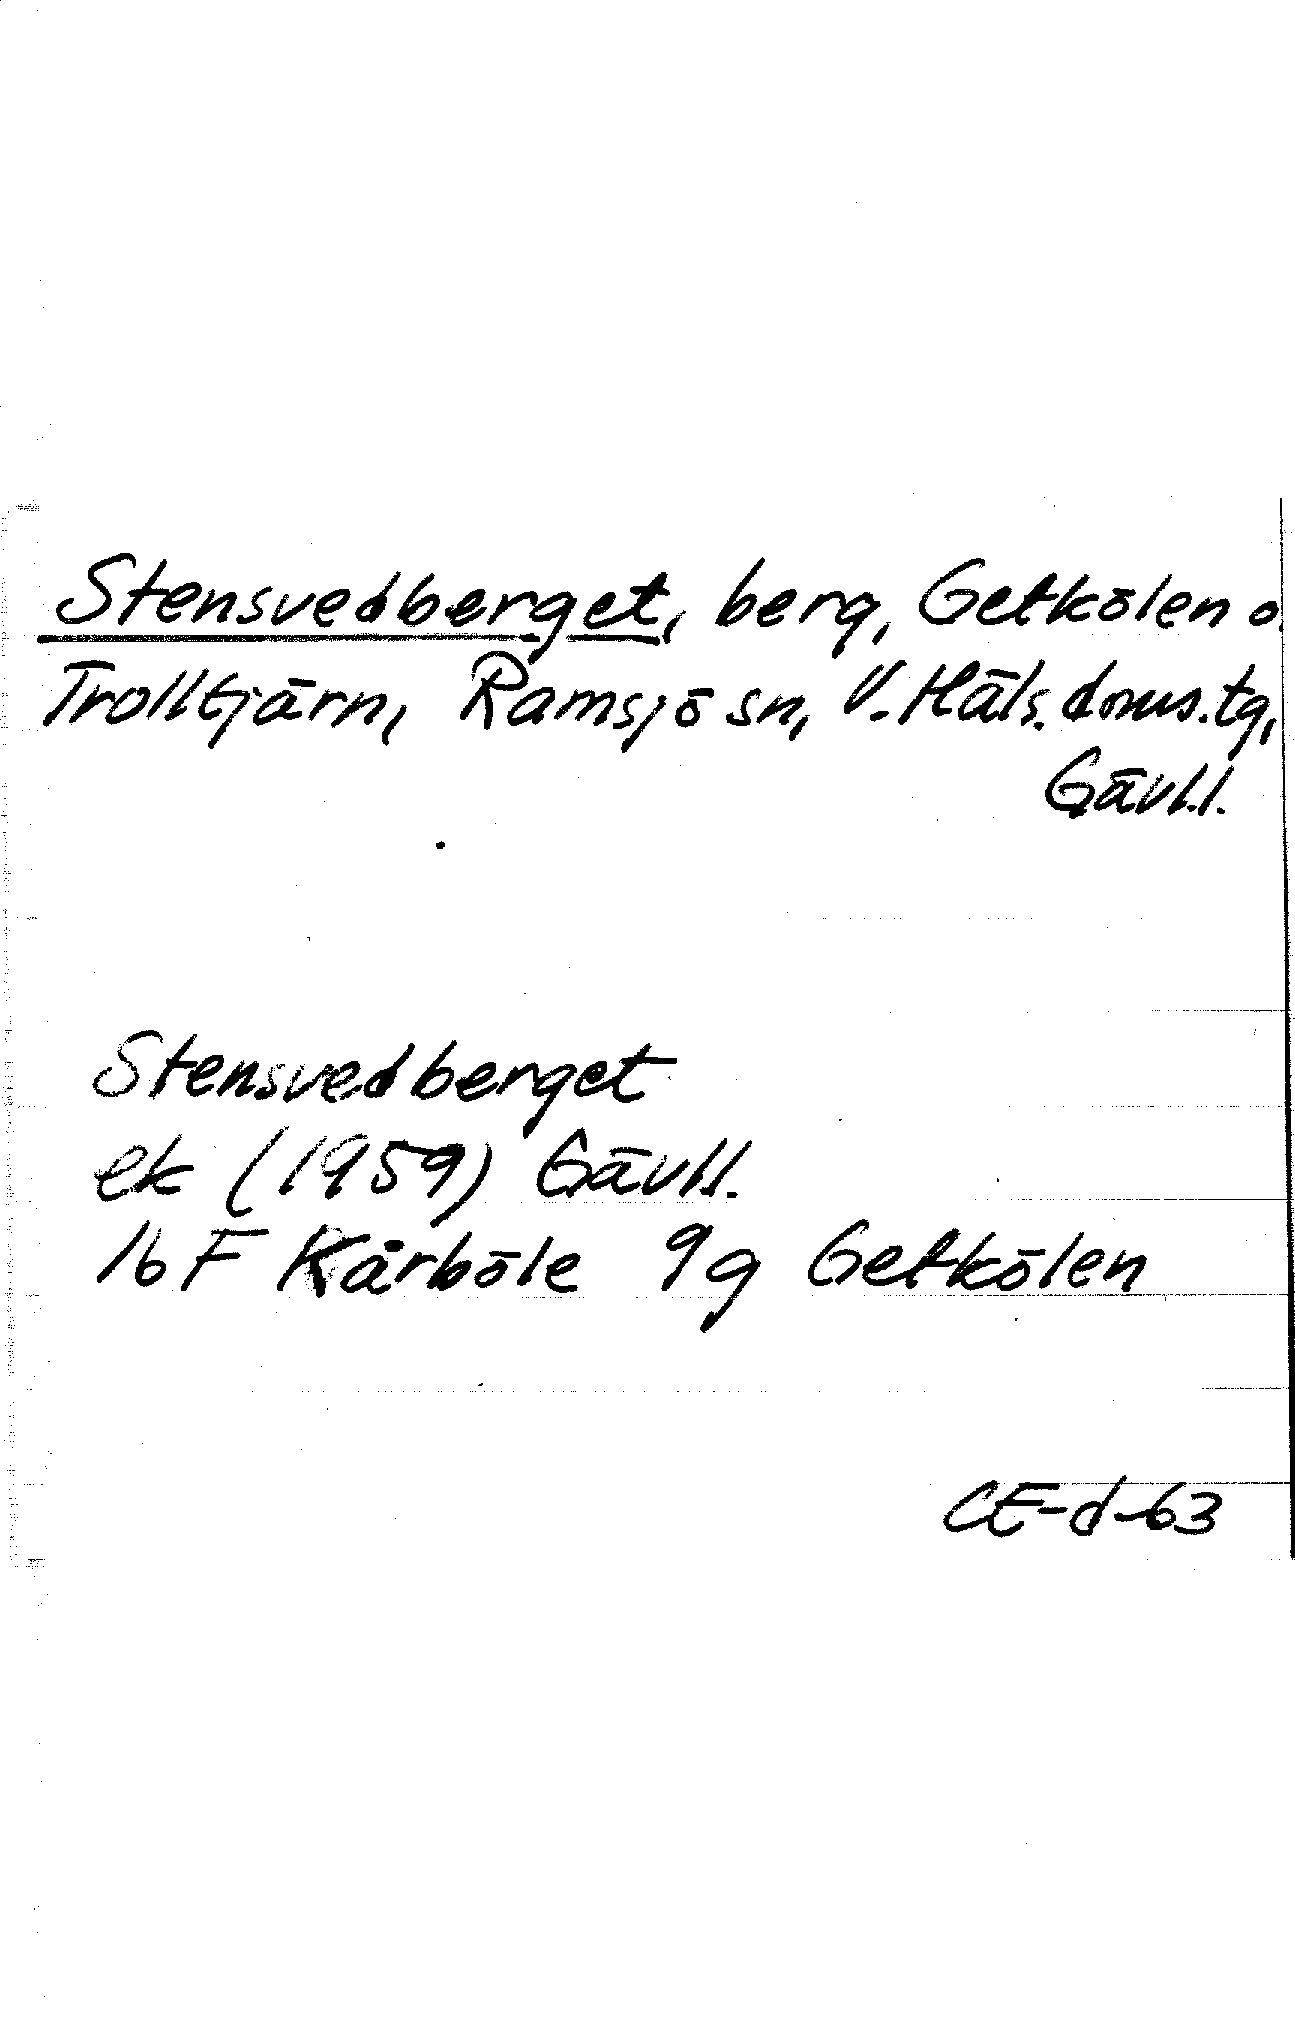 Stensvedberget, berg, Getkölen o.
Trolltjärn, Ramsjö sn, V. Häls. doms. tg,
Gävl.l.
Stensvedberget
ek (1959) Gävl.l.
16 F Kårböle 9g Getkölen
CE-d-63